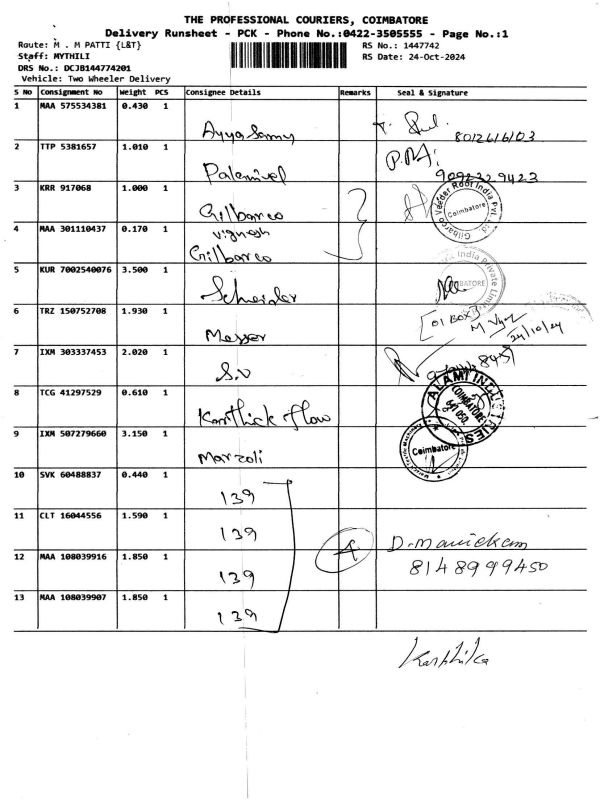 THE PROFESSIONAL COURIERS, COIMBATORE
Delivery Runsheet - PCK - Phone No.:0422-3505555 - Page No.:1
Route: M . M PATTI {L&T}
RS No.: 1447742
Staff: MYTHILI
RS Date: 24-Oct-2024
DRS No.: DCJB144774201
Vehicle: Two Wheeler Delivery
S No Consignment No Weight PCS Consignee Details Remarks Seal & Signature
1 MAA 575534381 0.430 1
Ayyasamy 8012616103
2 TTP 5381657 1.010 1
Palanivel P.M
9092329423
3 KRR 917068 1.000 1
Gilbarco
Gilbarco Veeder Root India Pvt. Ltd
Coimbatore
4 MAA 301110437 0.170 1
Vignesh
Gilbarco
5 KUR 7002540076 3.500 1
Scheider
India Private Limi
6 TRZ 150752708 1.930 1
Messer
[01 BOX]
24/10/24
7 IXM 303337453 2.020 1
S.V
8 TCG 41297529 0.610 1
Karthick flow
ALAMT INDUSTRIES
COIMBATORE
641 050.
9 IXM 507279660 3.150 1
Marzoli
Coimbatore
10 SVK 60488837 0.440 1
139
11 CLT 16044556 1.590 1
139
4
D.Manickam
8148999450
12 MAA 108039916 1.850 1
139
13 MAA 108039907 1.850 1
139
Karthika